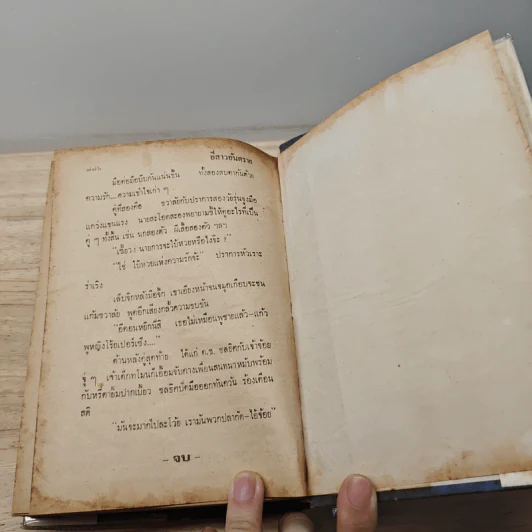 ๗๗๖
ยี่สาวอันตราย
มือต่อมือบีบกันแน่นขึ้น ทั้งสองสบตากันด้วย
ความรัก...ความเข้าใจเก่า ๆ
คู่ที่สองคือ ชวาลัยกับปราการสองวัยรุ่นจูงมือ
แกว่งแขนแรง นายสะโอดสะองพยายามชี้ให้ดูอะไรที่เป็น
คู่ ๆ ทั้งสิ้น เช่น นกสองตัว ผีเสื้อสองตัว ฯลฯ
นายการจะใบ้หวยหรือไงจ๊ะ !"
"ใช่ ใบ้หวยแห่งความรักจ้ะ" ปราการหัวเราะ
ร่าเริง
เล็บจิกหลังมือจึ้ก เขาเอียงหน้าจนจมูกเกือบจะชน
แก้มชวาลัย พูดอีกเสียงกลั้วความขบขัน
"อีตอนหยิกนี่สิ เธอไม่เหมือนพูชายแล้ว—แก้ว
พูหญิงโร้ยเปอร์เซ็ง...."
ด้านหลังคู่สุดท้าย ได้แก่ ด.ช. ชลธิศกับเจ้าจ้อย
เจ้าเด็กทโมนก็เอื้อมจับคางเพื่อนสนทนาหมับพร้อม
กับหรี่ตาอ้มปากเบี้ยว ชลธิศปัดมือออกทันควัน ร้องเตือน
สติ
"มันจะมากไปละโว้ย เรามันพวกปลากัด—ไอ้จ้อย"
— จบ —